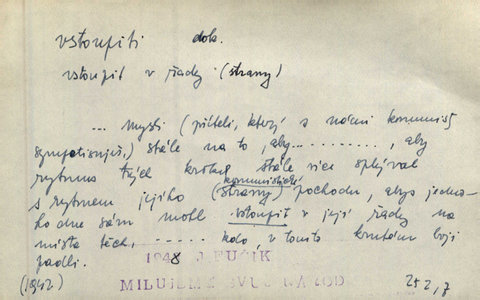 vstoupiti dok.
vstoupit v řady (strany)
... mysli (přítel, který s námi komunisty
sympatisuje,) stále na to, aby..........., aby
rytmus tvých kroků stále více splýval
s rytmem jejího (komunistické strany) pochodu, abys jedno-
ho dne sám mohl vstoupit v její řady na
místa těch, ...... kdo, v tomto krutém boji
padli.
1948 J. FUČÍK
(1942) MILUJEME SVŮJ NÁROD 252,7